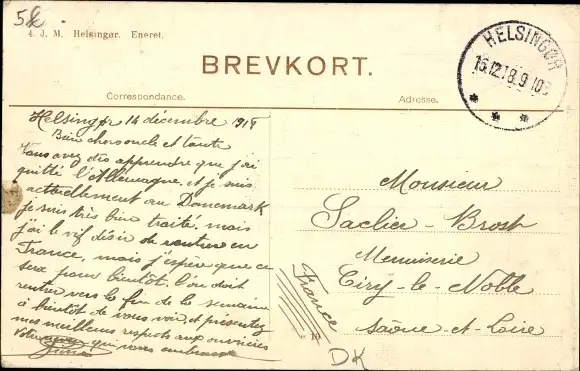 5k
4. J. M. Helsingør. Eneret.
HELSINGØR
16.12.18.9-10
BREVKORT.
Correspondance.
Adresse.
Helsingør 14 décembre 1918
Bien chers oncle et tante
Vous avez dès apprendre que j'ai
quitté l'Allemagne, et je suis
actuellement au Danemark
je suis très bien traité, mais
j'ai le vif désir de rentrer en
France, mais j'espère que ce
sera pour bientôt. L'on doit
rentrer vers la fin de la semaine
à bientôt de vous voir, et présentez
mes meilleurs respects aux ouvrières
Votre qui vous embrasse
Monsieur
Saclier-Brost
Menuiserie
Ciry-le-Noble
Saône-et-Loire
France
DK